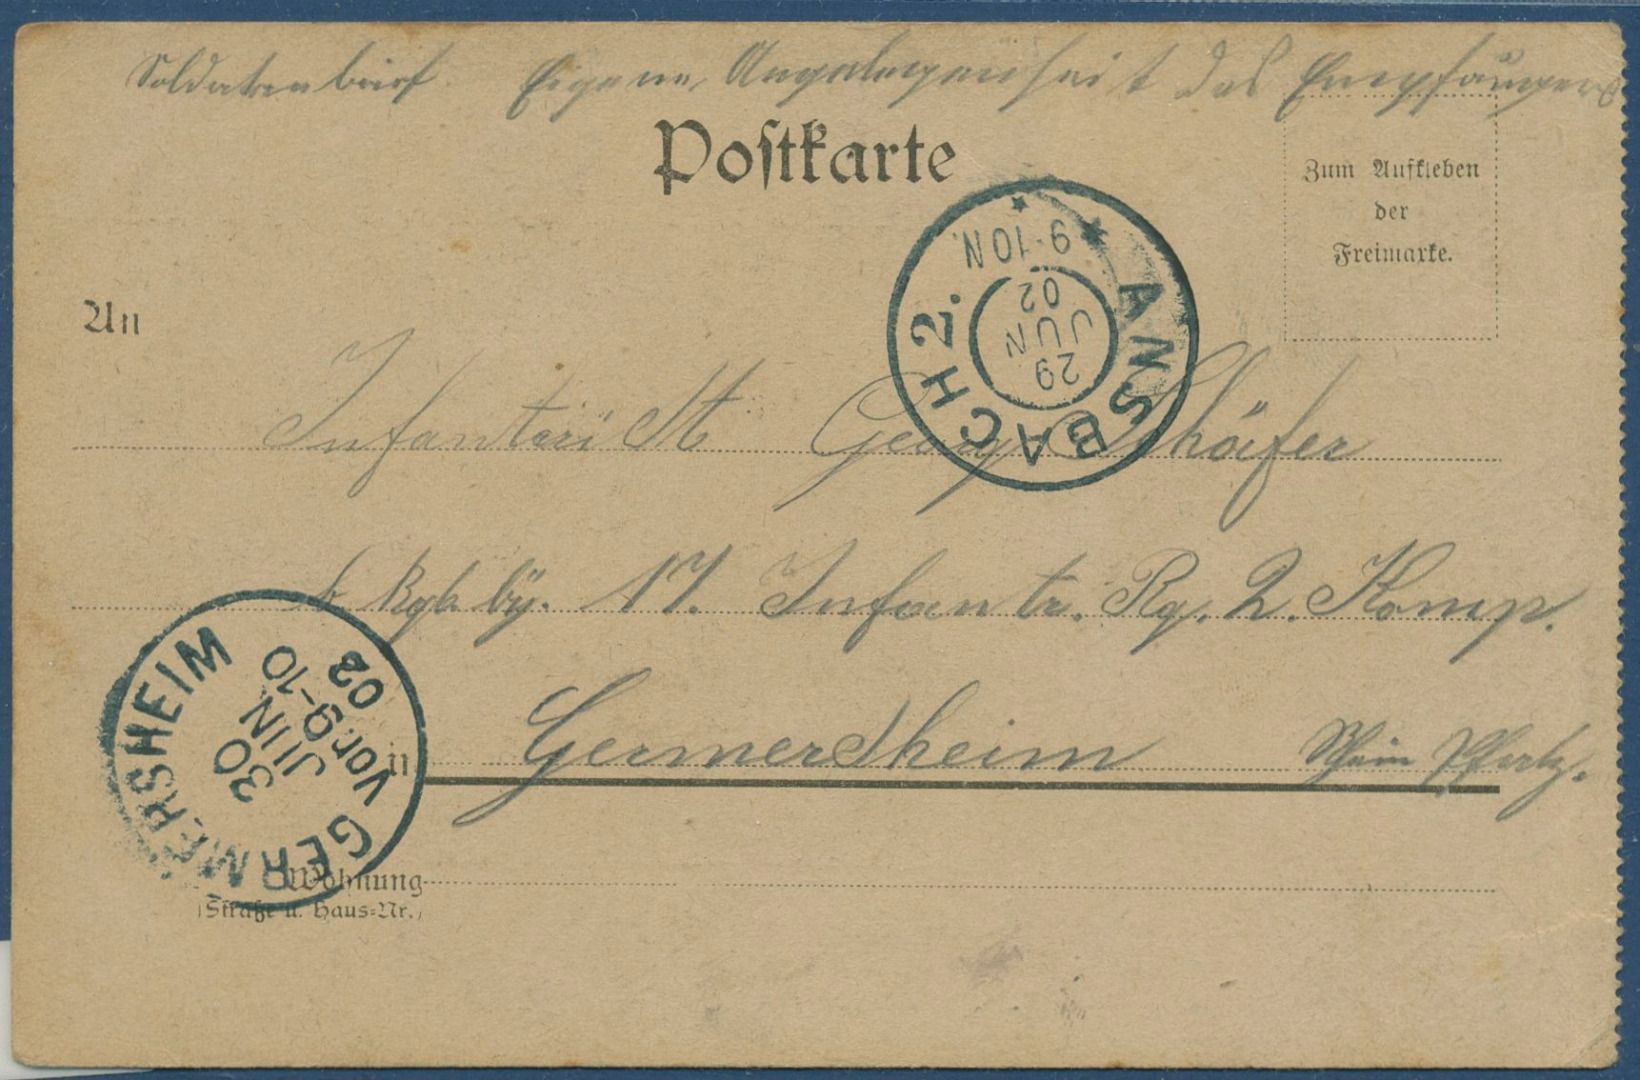 Soldatenbrief. Eigene Angelegenheit des Empfängers
Postkarte
Zum Aufkleben
der
Freimarke.
ANSBACH 2.
9-10 N.
29
JUN
02
An
Infanterist Georg Schäfer
k. bÿ. 17. Infantr. Rg. 2. Komp.
in Germersheim Rhein Pfalz.
GERMERSHEIM
30
JUN
Vor. 9-10
02
Wohnung
(Straße u. Haus-Nr.)